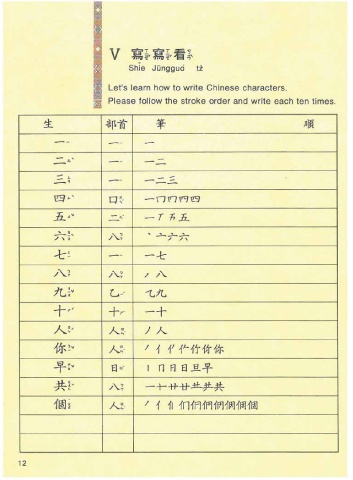 V 寫寫看
Shie Jūngguó tž
Let's learn how to write Chinese characters.
Please follow the stroke order and write each ten times.
生 部首 筆 順
一 一 一
二 一 一二
三 一 一二三
四 口 四
五 二 一丁五
六 八 丶亠六六
七 一 一七
八 八 丿八
九 乙 乙九
十 十 一十
人 人 丿人
你 人 丿亻你你
早 日 丨冂日日旦早
共 八 一十卄共共
個 人 丿亻們個個個
12